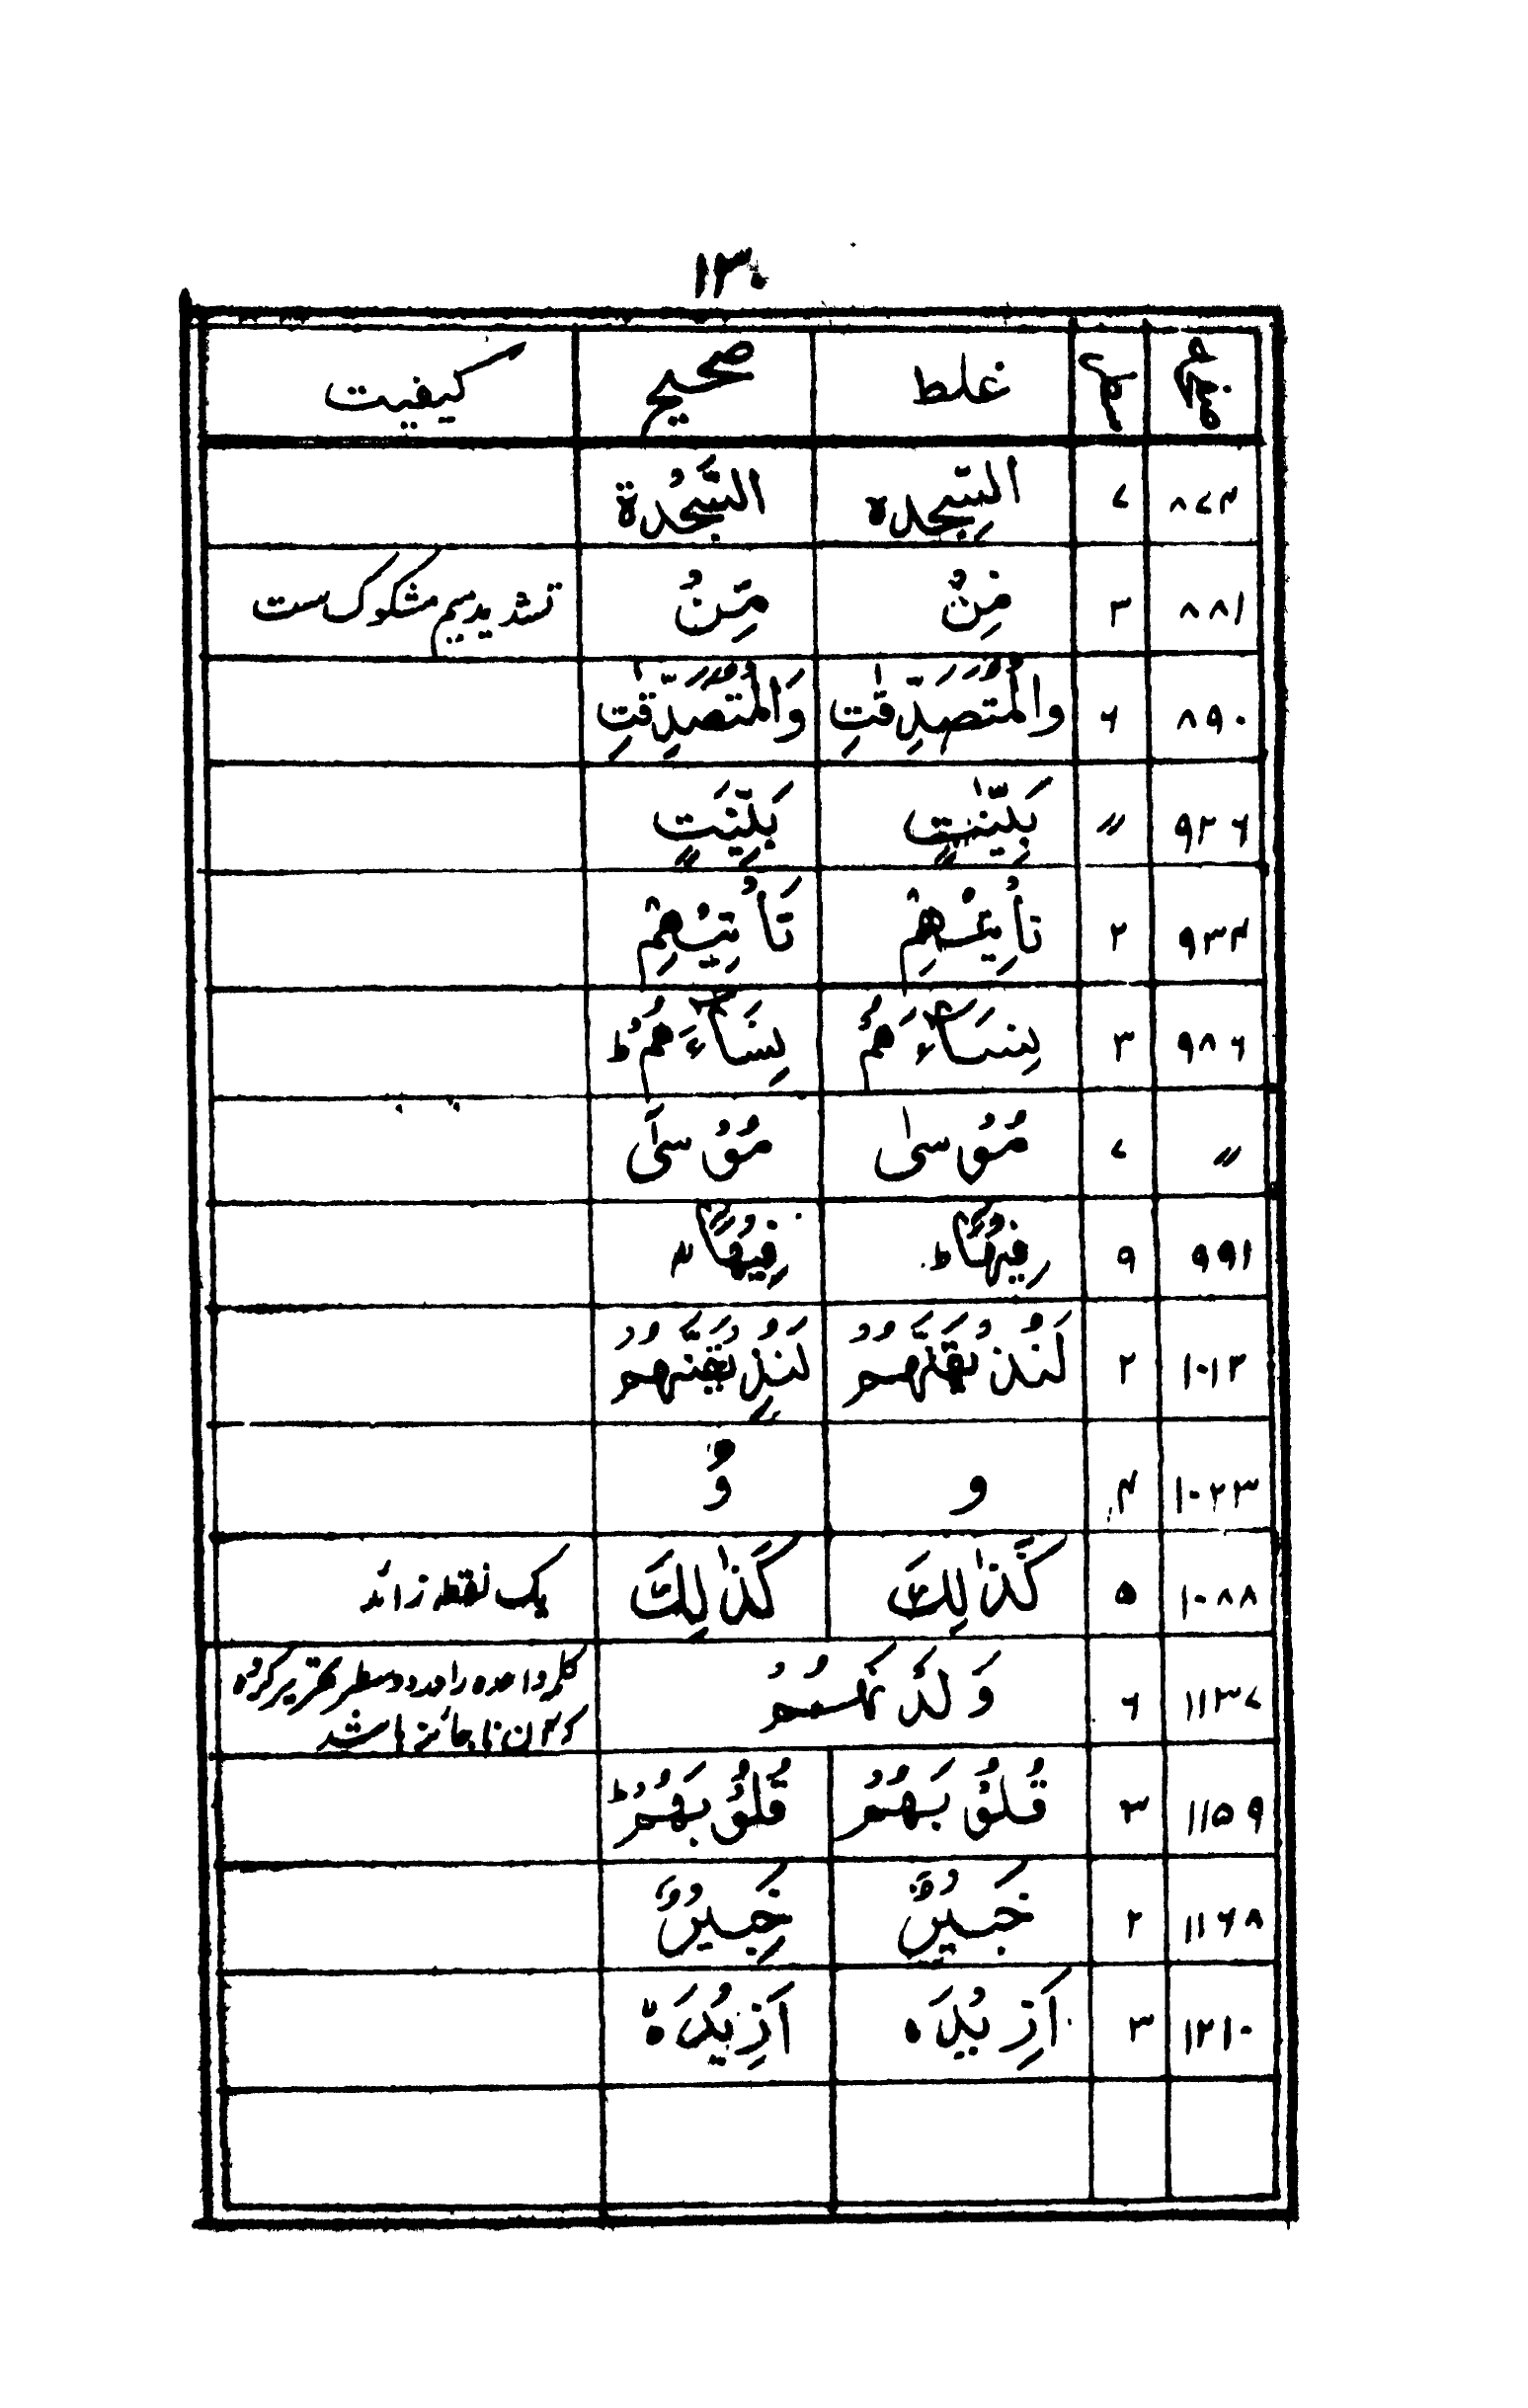 ۱۳۰
صفحہ سطر غلط صحیح کیفیت
۸۷۴ ۷ السِّجدہ السَّجْدَة
۸۸۱ ۳ مِنْ مِّنْ تشدید میم مشکوک ست
۸۹۰ ۶ والْمُتَصَدِّقٰتِ وَالْمُتَصَدِّقٰتِ
۹۲۶ 〃 بَيِّنٰتٍ بَيِّنٰتٍ
۹۳۴ ۲ تَأْتِيْهِمْ
۹۸۶ ۳ نِسَآءَهُمْ نِسَآءَهُمْ ط
〃 ۷ مُوْسٰى مُوْسٰٓى
۹۹۱ ۹ فِيْهَا ط فِيْهَا
۱۰۱۳ ۲ لَنُذِيْقَنَّهُمْ
۱۰۲۳ ۴ و وْ
۱۰۸۸ ۵ كَذٰلِكَ كَذٰلِكَ یک نقطہ زائد
۱۱۳۷ ۶ کلمہ واحدہ را در دو سطر تحریر کردہ
کردن ناجائز باشد
۱۱۵۹ ۳ قُلُوْبَهُمْ قُلُوْبَهُمْ ط
۱۱۶۸ ۲ خَبِيْرٌ خَبِيْرٌ
۱۲۱۰ ۳ اَزِيْدَ ہ اَزِيْدَ ہ